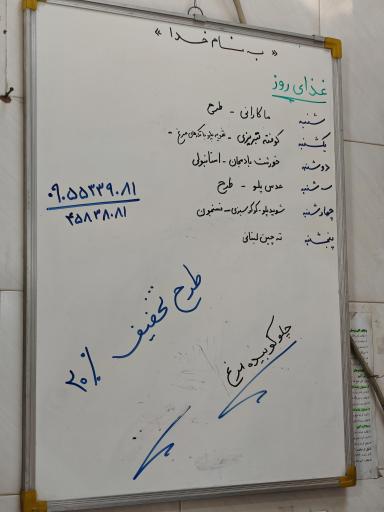 « به نام خدا »
غذای روز
شنبه ماکارانی - طرح
یکشنبه کوفته تبریزی - قورمه پلو با تکه‌های مرغ -
دوشنبه خورشت بادمجان - استانبولی
سه شنبه عدس پلو - طرح
چهارشنبه شویدپلو - کوکو سبزی - فسنجون
پنجشنبه ته چین لبنانی
۰۹۰۵۵۳۳۹۰۸۱
۴۵۸۳۸۰۸۱
طرح تخفیف ۲۰٪
چلو کوبیده مرغ